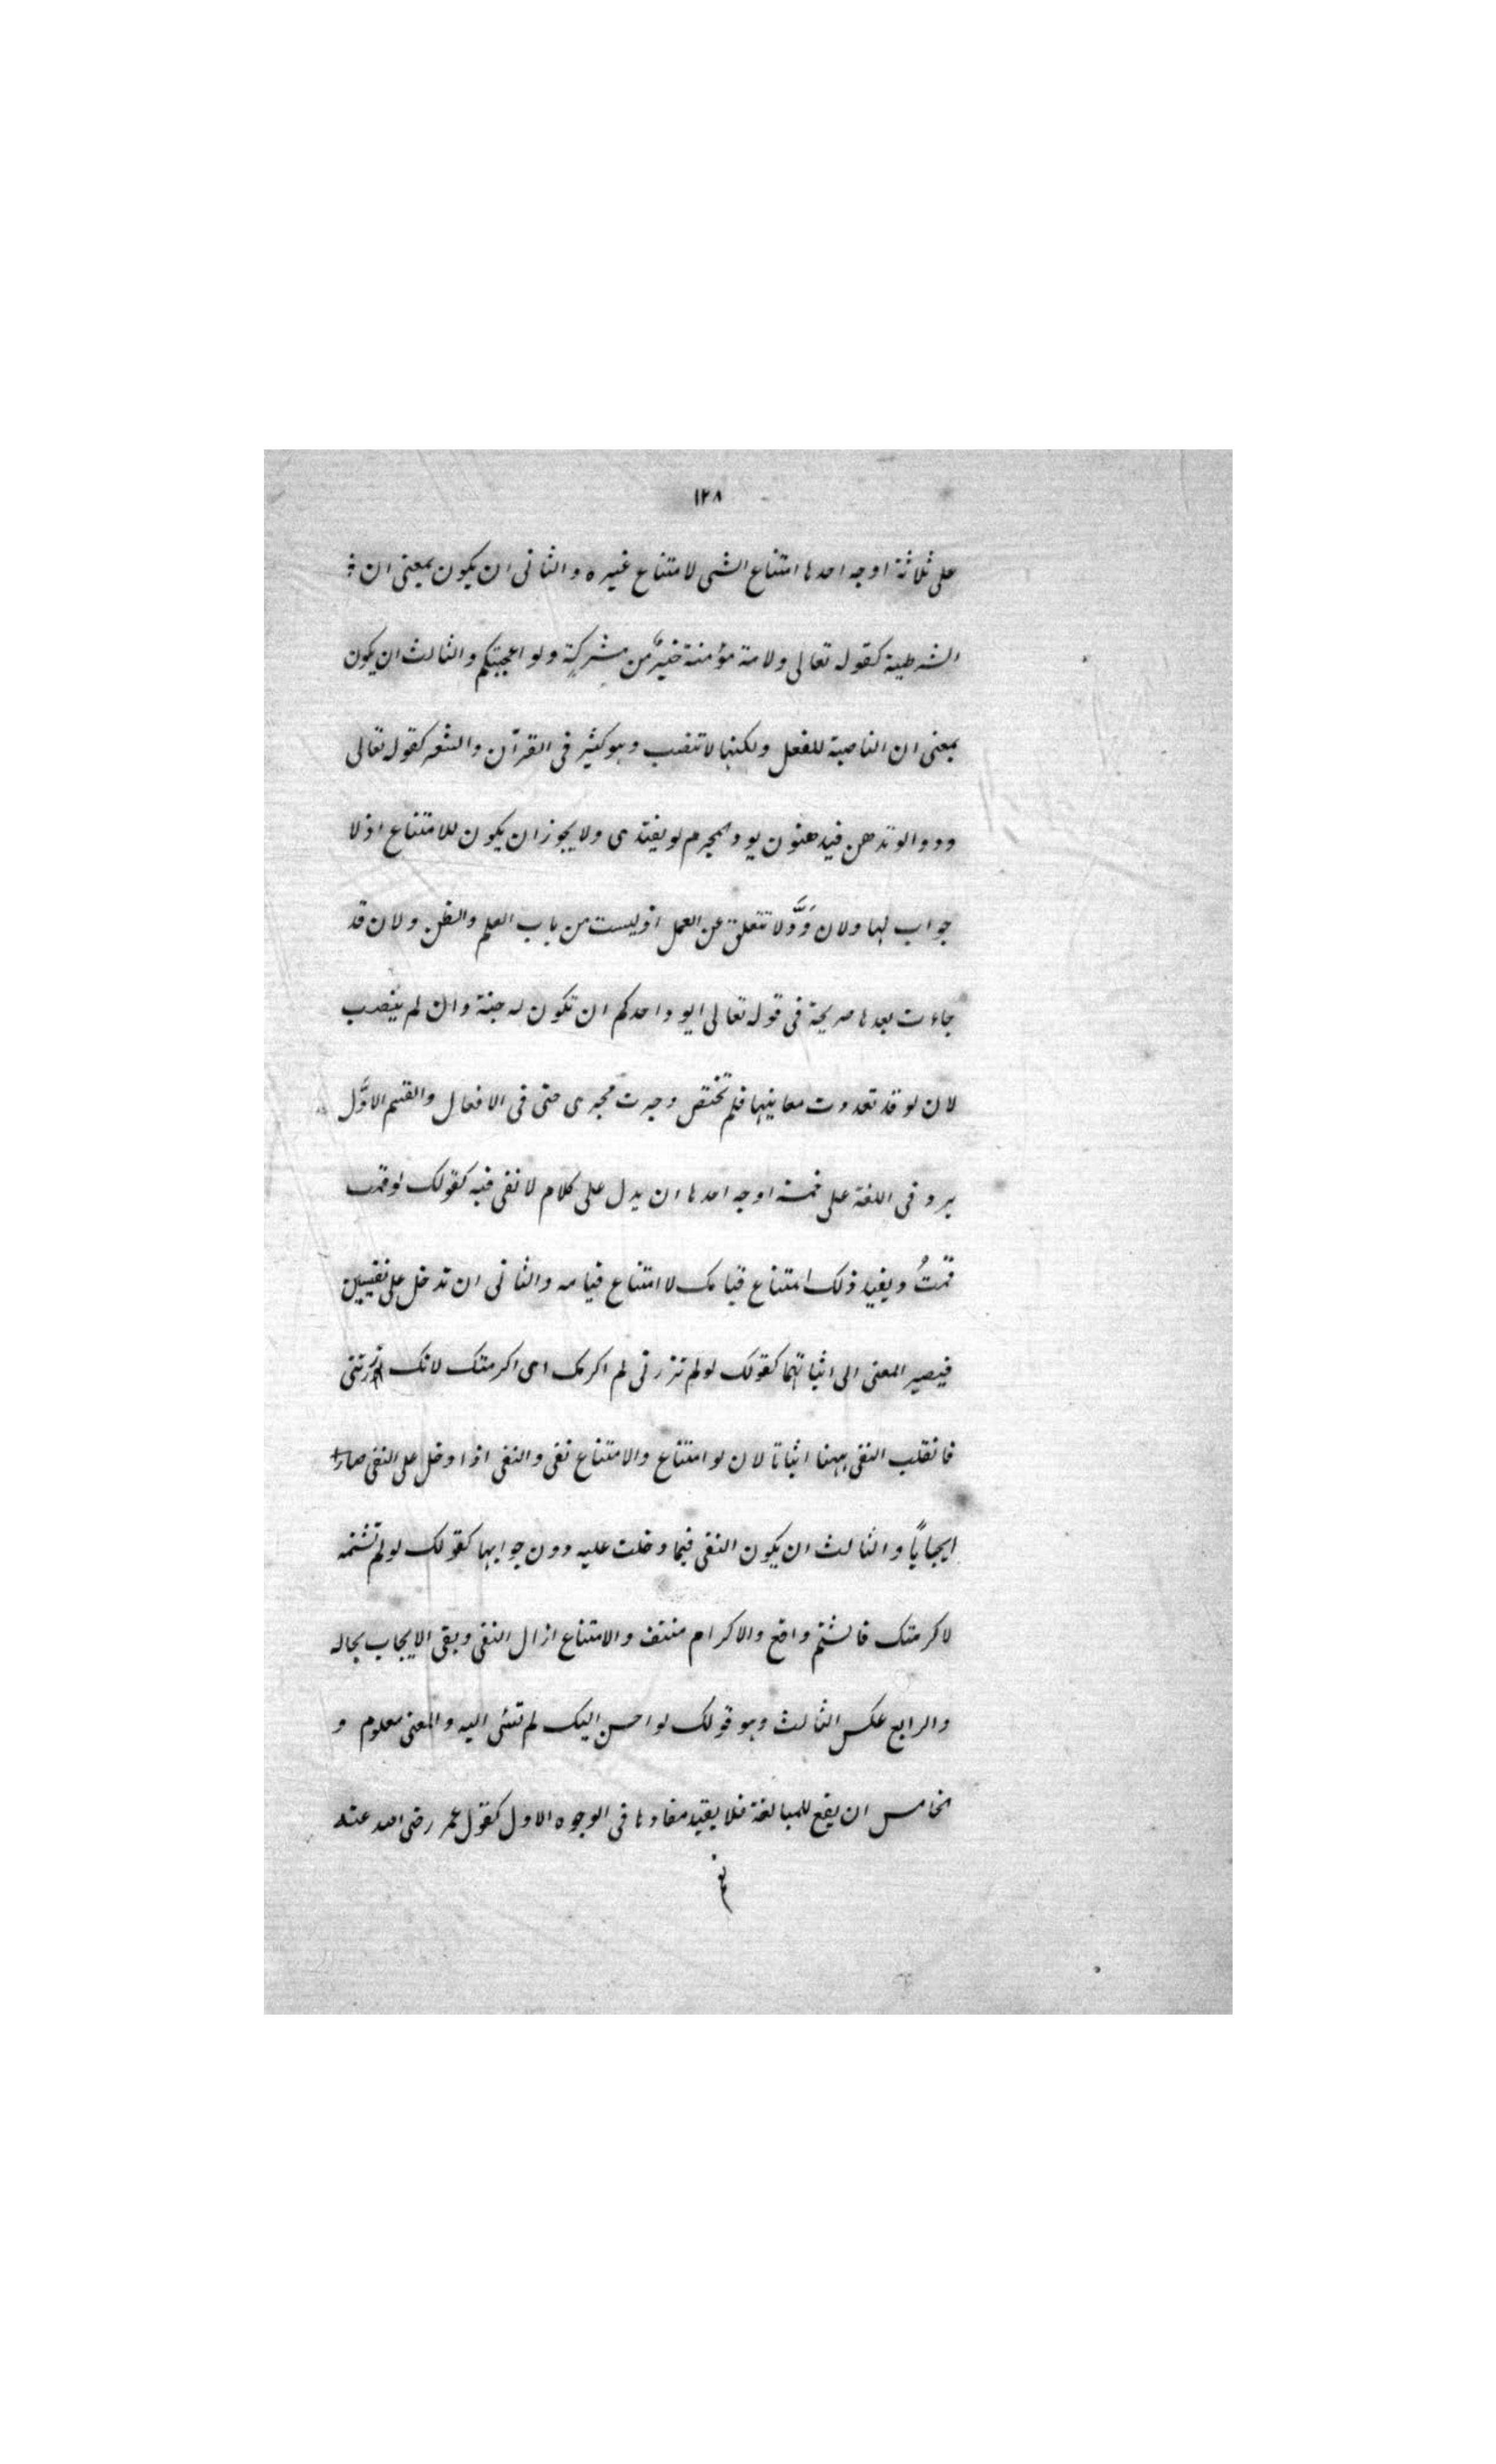 ١٢٨
على ثلاثة اوجه احدها امتناع الشى لامتناع غيره والثانى ان يكون بمعنى ان
الشرطية كقوله تعالى ولامة مؤمنة خيرٌ من مشركةٍ ولو اعجبتكم والثالث ان يكون
بمعنى ان الناصبة للفعل ولكنها لا تنصب وهو كثير فى القرآن والشعر كقوله تعالى
ودوا لو تدهن فيدهنون يود المجرم لو يفتدى ولا يجوز ان يكون للامتناع اذ لا
جواب لها ولان وَدَّ لا تتعلق عن العمل اذ ليست من باب العلم والظن ولان قد
جاءت بعدها صريحة فى قوله تعالى ايود احدكم ان تكون له جنة وان لم ينصب
لان لو قد تعددت معانيها فلم تختص وجرت مجرى حتى فى الافعال والقسم الاوَّل
يرد فى اللغة على خمسة اوجه احدها ان يدل على كلام لا نفى فيه كقولك لو قمت
قمتُ ويفيد ذلك امتناع قيامك لامتناع قيامه والثانى ان تدخل على نفيين
فيصير المعنى الى اثباتهما كقولك لو لم تزرنى لم اكرمك اى اكرمتك لانك زرتنى
فانقلب النفى ههنا اثباتا لان لو امتناع والامتناع نفى والنفى اذا دخل على النفى صار
ايجاباً والثالث ان يكون النفى فيما دخلت عليه دون جوابها كقولك لو لم تشتمه
لاكرمتك فالشتم واقع والاكرام منتف والامتناع ازال النفى وبقى الايجاب بحاله
والرابع عكس الثالث وهو قولك لو احسن اليك لم تسئى اليه والمعنى معلوم و
الخامس ان يقع للمبالغة فلا يفيد مفادها فى الوجوه الاول كقول عمر رضى الله عنه
نعم